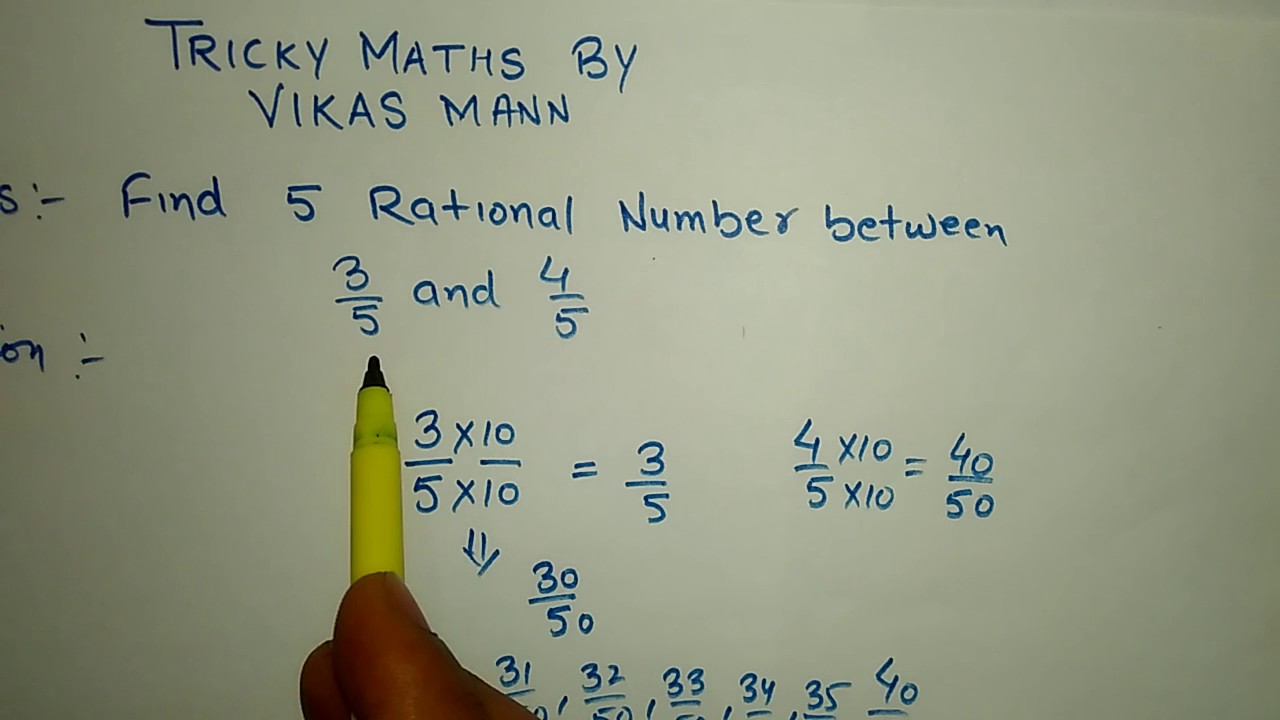 TRICKY MATHS BY
VIKAS MANN
s:- Find 5 Rational Number between
3/5 and 4/5
on :-
3×10/5×10 = 3/5 4×10/5×10 = 40/50
⇓
30/50
31/50, 32/50, 33/50, 34, 35 40